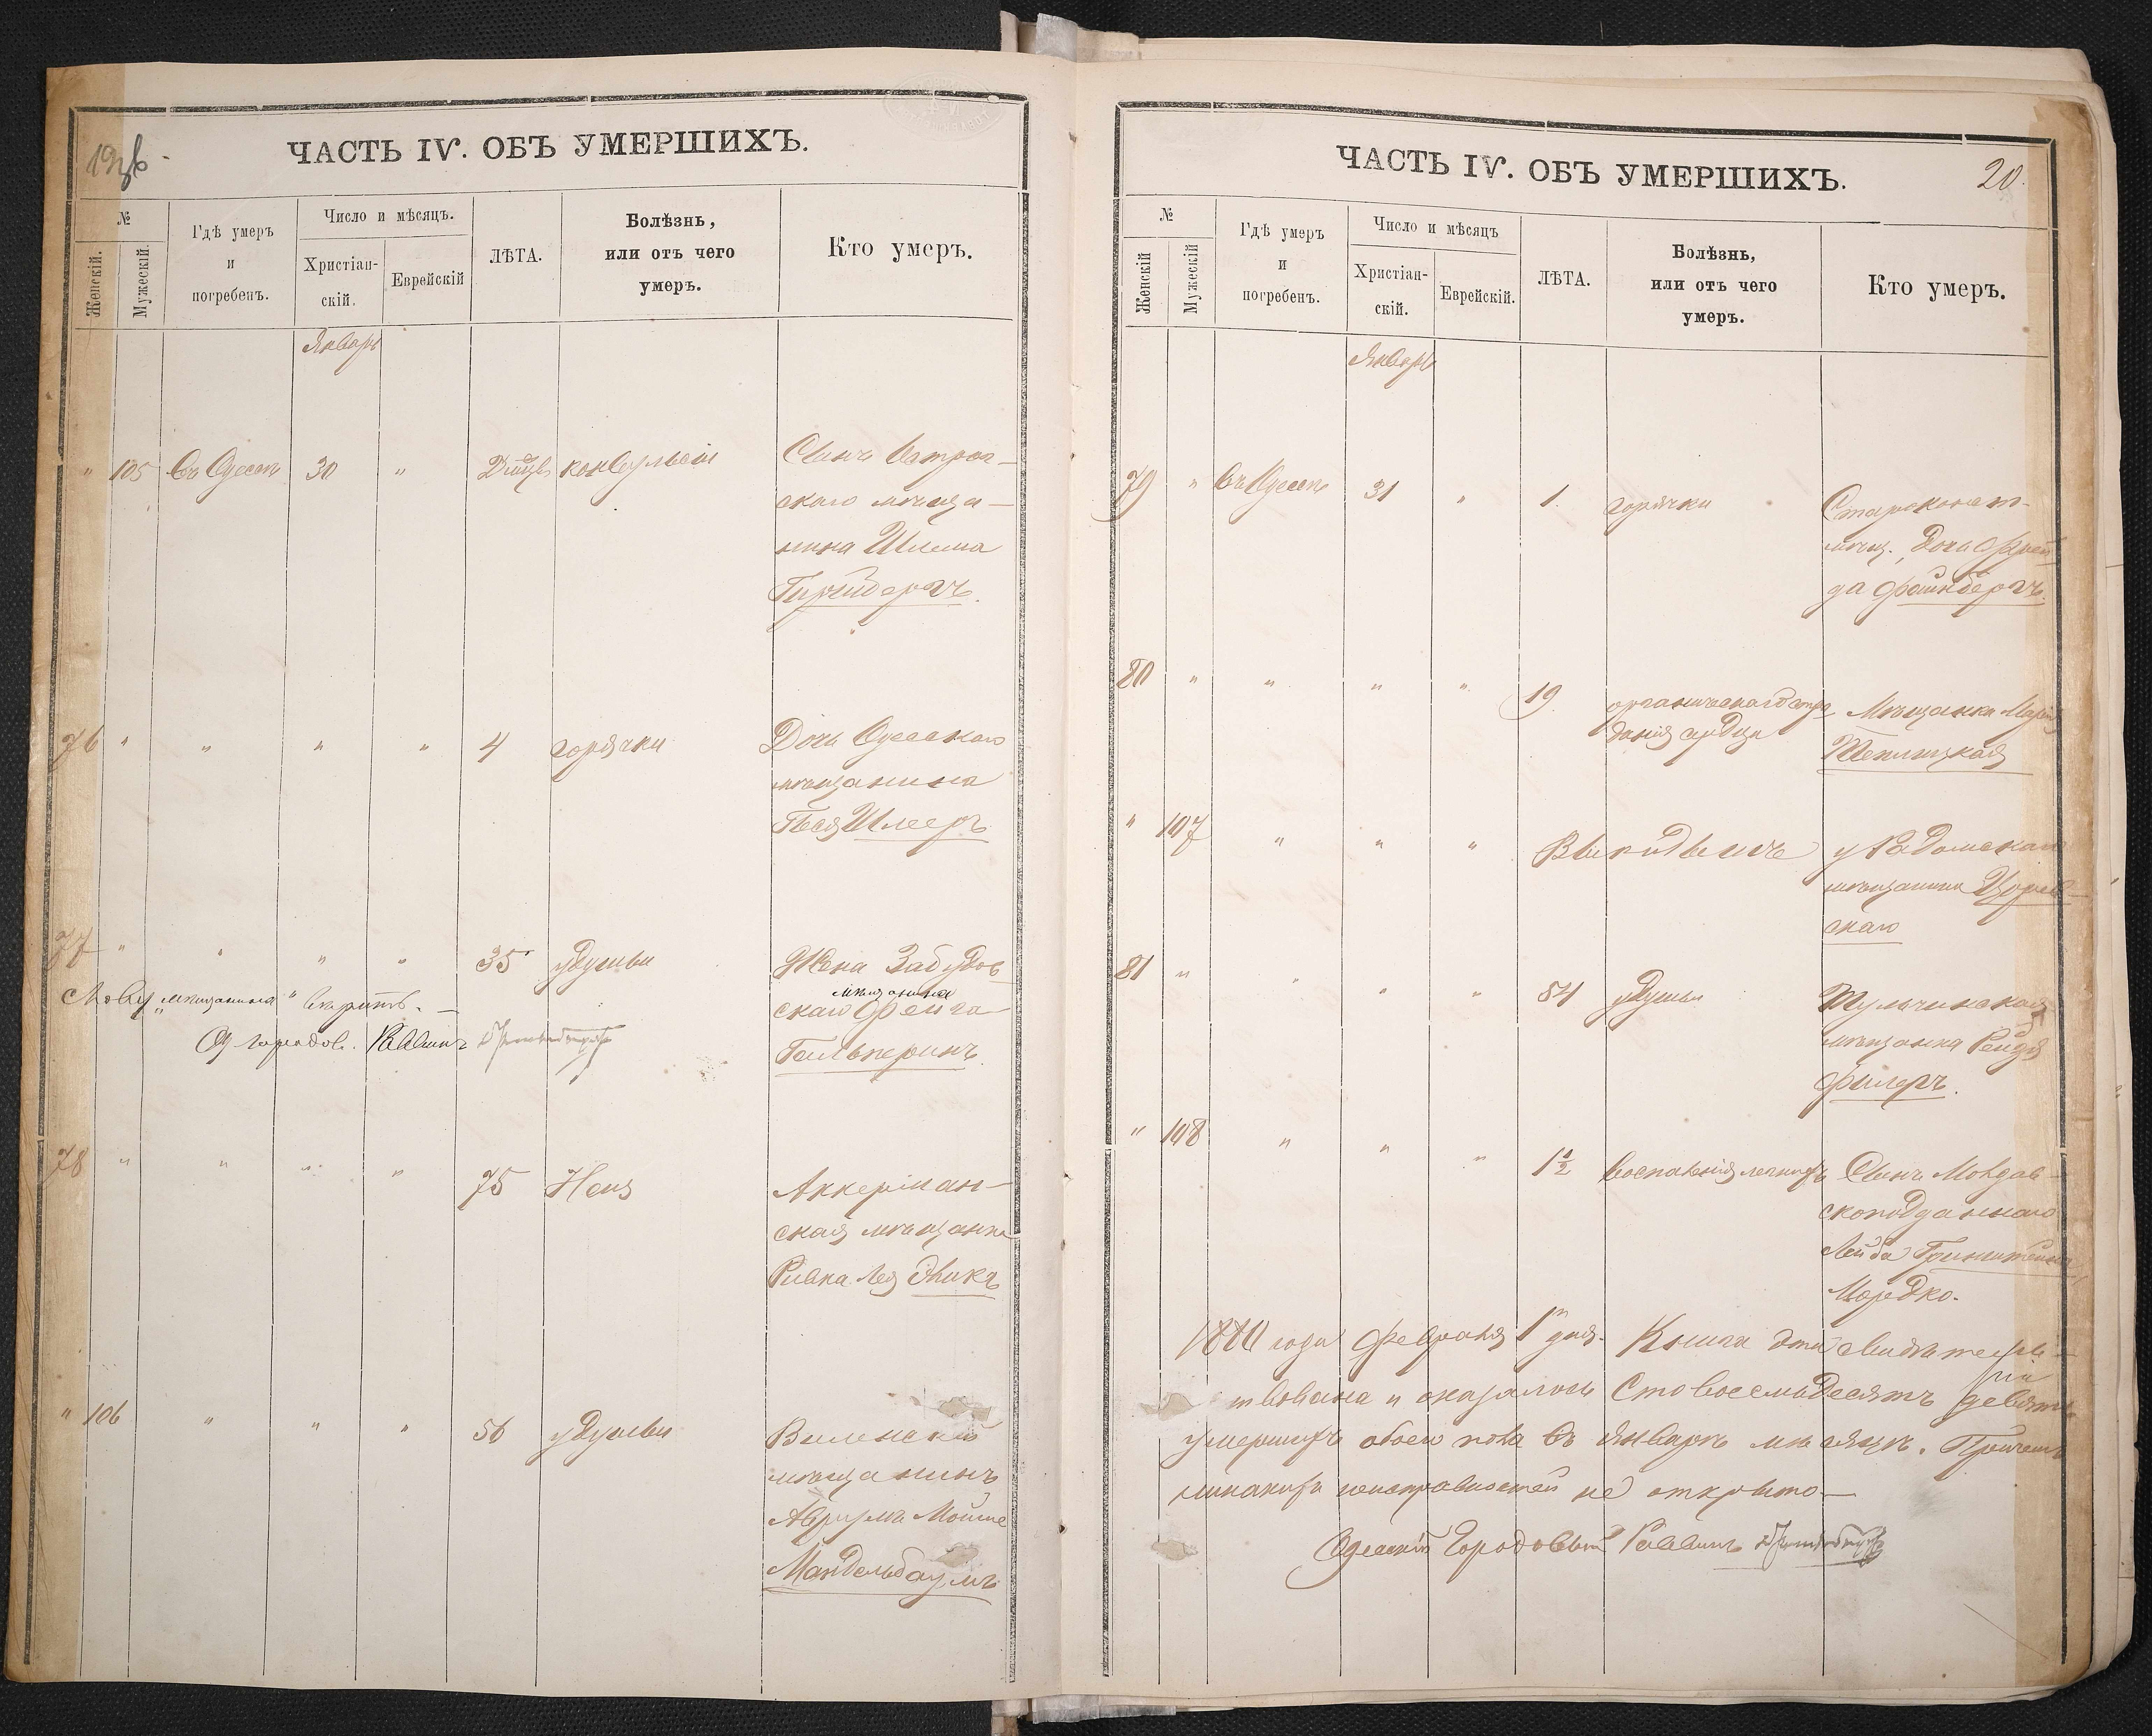 19об.
ЧАСТЬ IV. ОБЪ УМЕРШИХЪ.
№
Женскій.
Мужескій.
Гдѣ умеръ
и
погребенъ.
Число и мѣсяцъ.
Христіан-
скій.
Еврейскій
ЛѢТА.
Болѣзнь,
или отъ чего
умеръ.
Кто умеръ.
Январь
" 105 Въ Одессѣ 30 " конвульсіи Сынъ Острог-
скаго мѣща-
нина Шлема
76 " " " " 4 горячки Дочь Одесскаго
мѣщанина
Песя Шлееръ
77 " " " " 35 удушья Жена Заблудов
скаго мѣщанина Фейга
Гальперинъ.
Слову „мѣщанина" вѣрить. —
Од. городов. Раввинъ
78 " " " " 75 Аккерман-
ская мѣщанка
Ривка Лея
" 106 " " " 56 удушья Виленскій
мѣщанинъ
Аврумъ Мойше
Мандельбаумъ
ЧАСТЬ IV. ОБЪ УМЕРШИХЪ.
20.
№
Женскій
Мужескій
Гдѣ умеръ
и
погребенъ.
Число и мѣсяцъ
Христіан-
скій.
Еврейскій.
ЛѢТА.
Болѣзнь,
или отъ чего
умеръ.
Кто умеръ.
Январь
79 " Въ Одессѣ 31 " 1. горячки Староконст.
мѣщ. Дочь Фрей
да Файнбергъ.
80 " " " " 19 органическаго стра Мѣщанка Марія
данія сердца Теплицкая
" 107 " " " Выкидышъ у Радомскаго
мѣщанина
скаго
81 " " " " 54 удушья Тульчинская
мѣщанка Рейзя
Филеръ.
" 108 " " " 1½ воспаленія легкихъ Сынъ Молдав-
скоподданнаго
Лейба Гринштейна
Мордко.
1880 года Февраля 1го дня. Книга эта свидѣтель-
ствована и оказалось Сто восемьдесятъ девять
умершихъ обоего пола въ Январѣ мѣсяцѣ. Причемъ
никакихъ неисправностей не открыто —
Одесскій Городовый Раввинъ